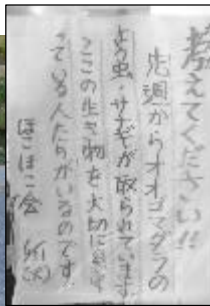 考えてください!!
先週からオオゴマダラの
よう虫・サナギが取られています
ここの生き物を大切に
ている人たちがいるのです
ほこほこ会